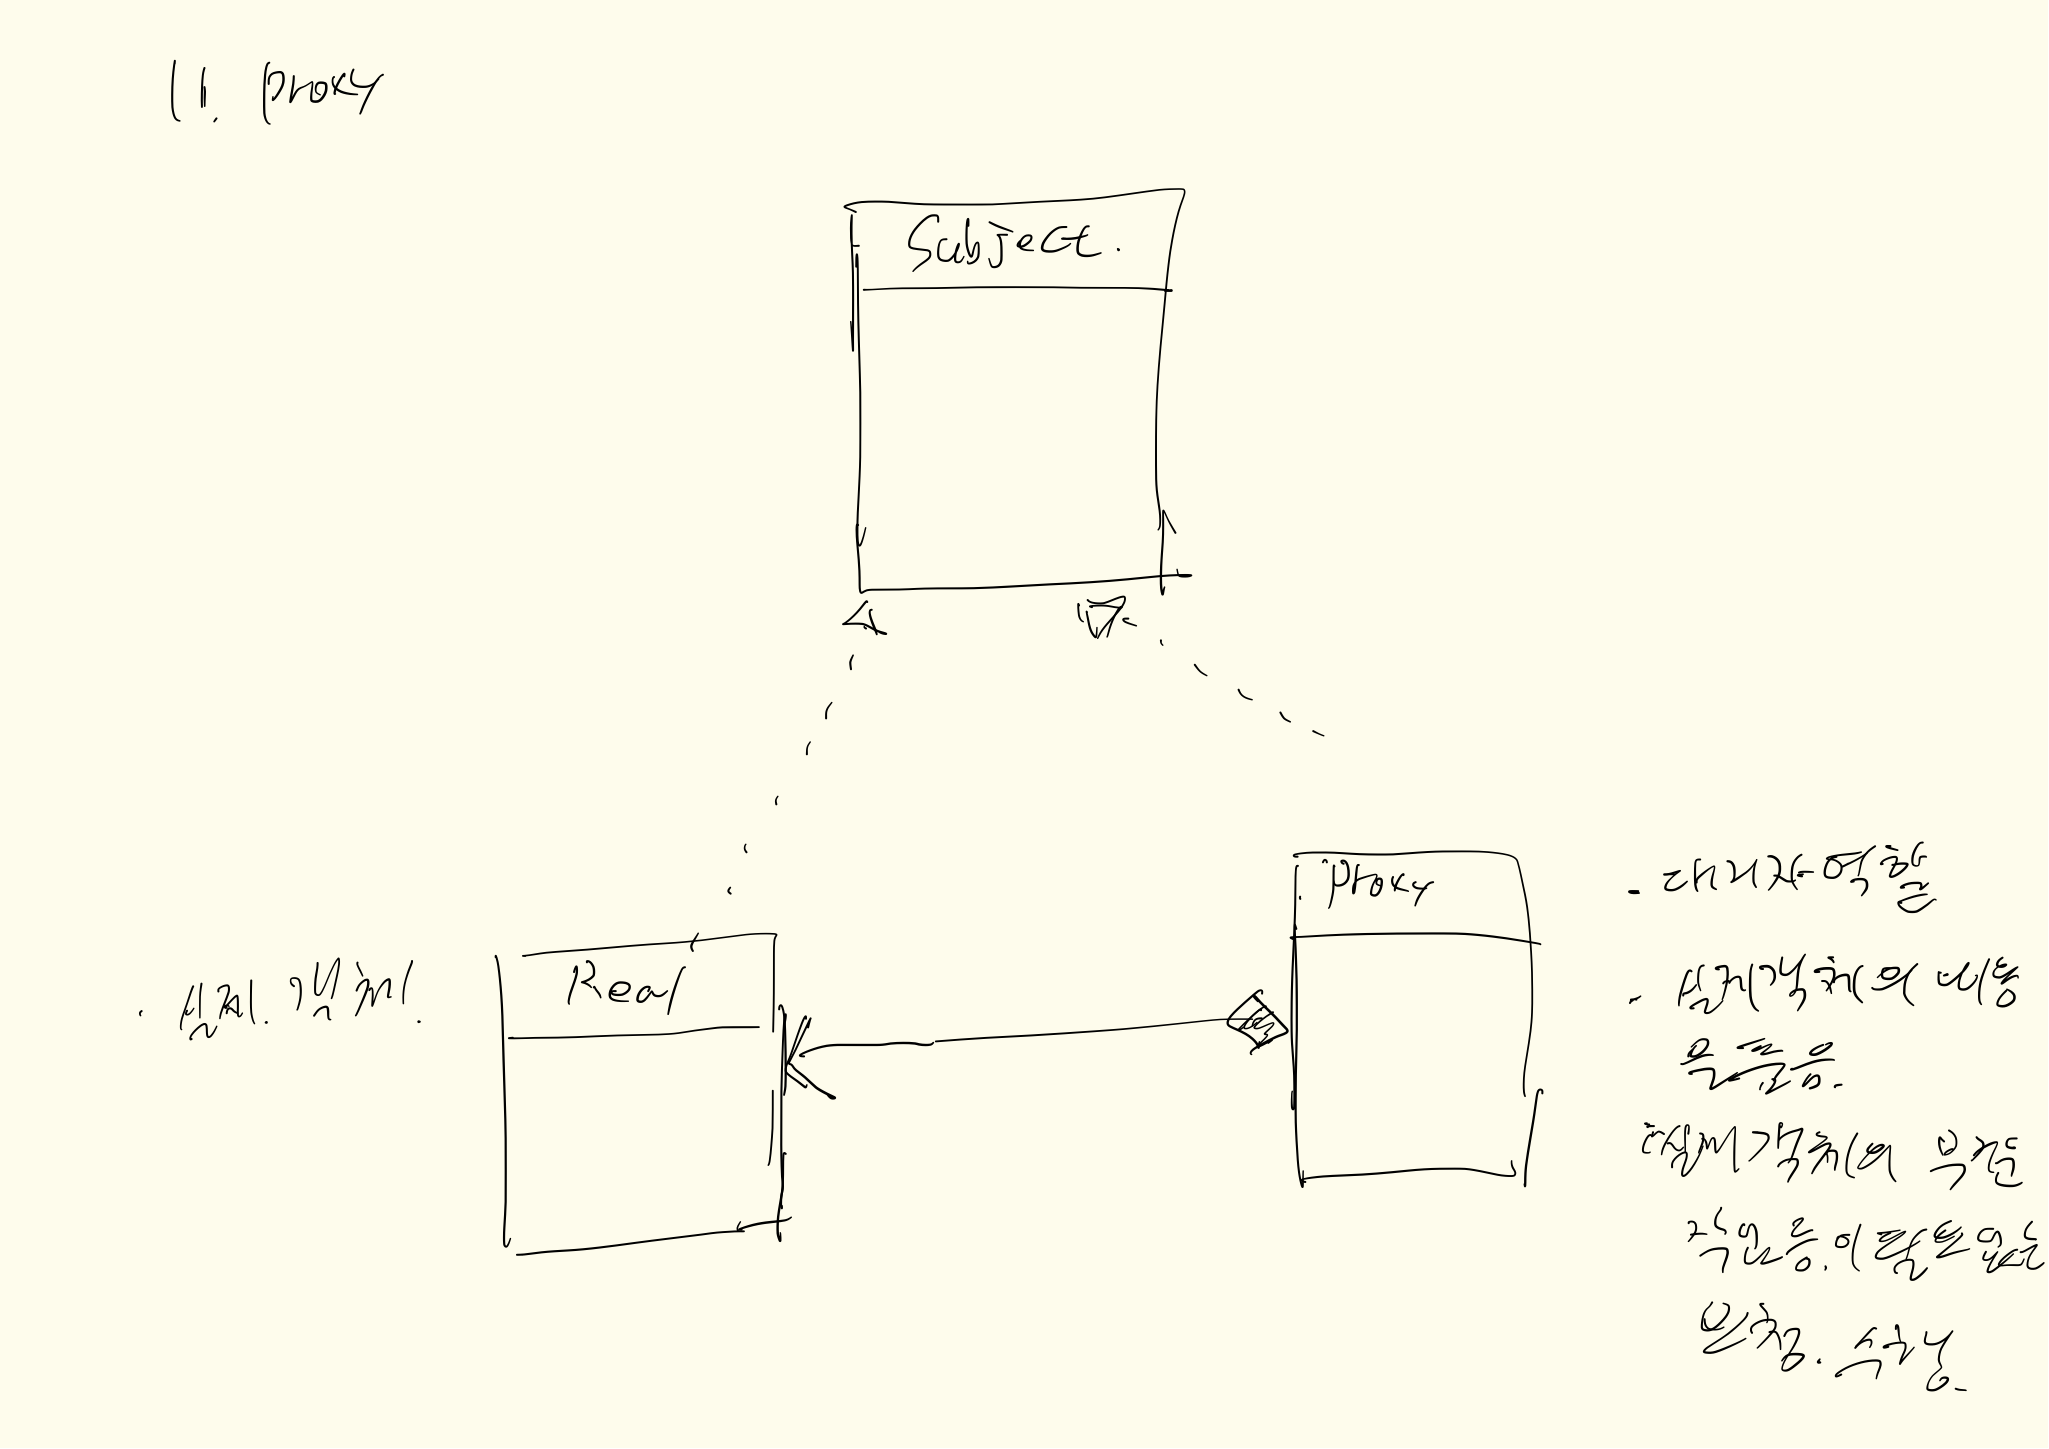 11. Proxy
Subject.
Proxy
Real
. 실제. 객체!
. 대리자 역할
. 실제객체의 내용
을 들음.
실제 객체의
작업등.이 필요없는
요청. 수행.